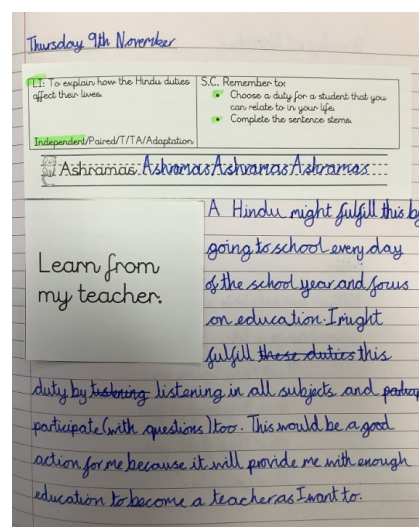 Thursday 9th November
LI: To explain how the Hindu duties
affect their lives.
Independent/Paired/T/TA/Adaptation
S.C. Remember to:
Choose a duty for a student that you
can relate to in your life.
Complete the sentence stems.
Ashramas Ashramas Ashramas Ashramas
Learn from
my teacher.
A Hindu might fulfill this by
going to school every day
of the school year and focus
on education. I might
fulfill these duties this
duty by listening in all subjects and
participate (with questions) too. This would be a good
action for me because it will provide me with enough
education to become a teacher as I want to.